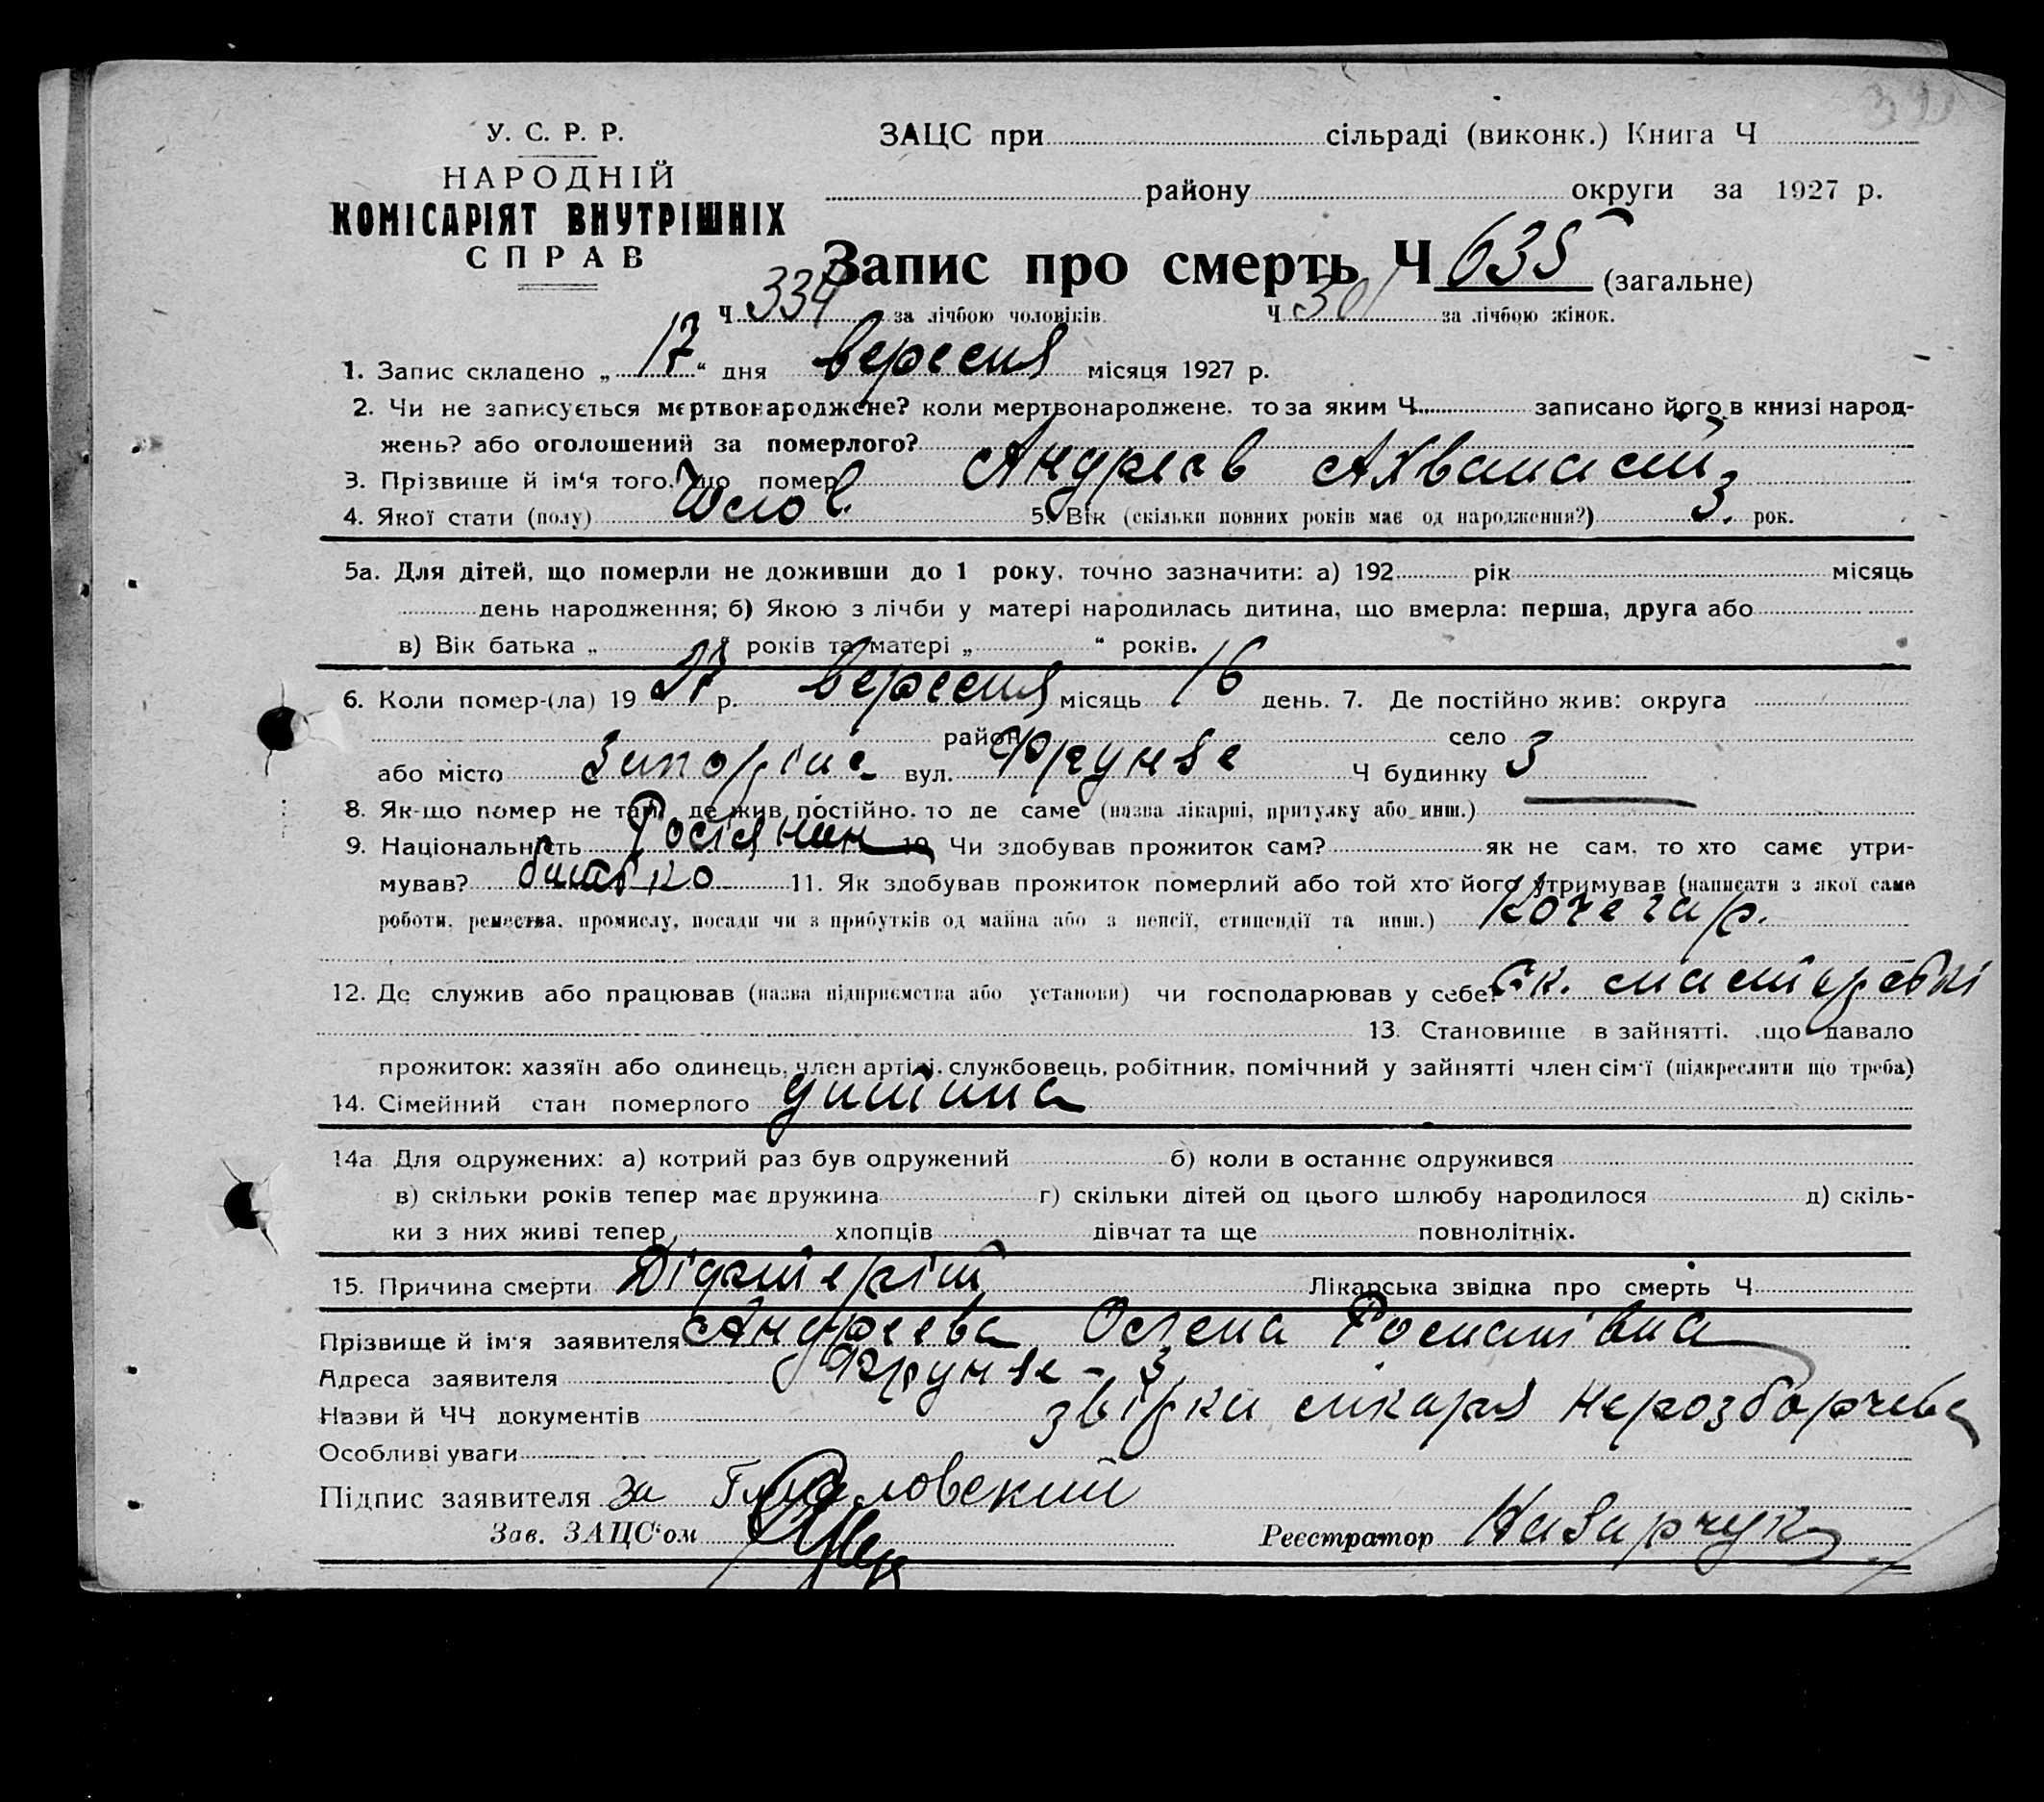 У. С. Р. Р.
НАРОДНІЙ
КОМІСАРІЯТ ВНУТРІШНІХ
СПРАВ
ЗАЦС при сільраді (виконк.) Книга Ч
району округи за 1927 р.
Запис про смерть Ч 635 (загальне)
Ч 334 за лічбою чоловіків. Ч 301 за лічбою жінок.
1. Запис складено „ 17 “ дня вересня місяця 1927 р.
2. Чи не записується мертвонароджене? коли мертвонароджене. то за яким Ч. записано його в книзі народ-
жень? або оголошений за померлого?
3. Прізвище й ім‘я того, що помер Андреєв Ахванасій
4. Якої стати (полу) чолов. 5. Вік (скільки повних років має од народження?) 3. рок.
5а. Для дітей, що померли не доживши до 1 року, точно зазначити: а) 192 рік місяць
день народження; б) Якою з лічби у матері народилась дитина, що вмерла: перша, друга або
в) Вік батька „ “ років та матері „ “ років.
6. Коли помер-(ла) 19 27 р. вересня місяць 16 день. 7. Де постійно жив: округа
район село
або місто Запоріжжє вул. Фрунзе Ч будинку 3
8. Як-що помер не там, де жив постійно, то де саме (назва лікарні, притулку або инш.)
9. Національність Росіянин 10. Чи здобував прожиток сам? як не сам, то хто саме утри-
мував? батько 11. Як здобував прожиток померлий або той хто його утримував (написати з якої саме
роботи, ремества, промислу, посади чи з прибутків од майна або з пенсії, стипендії та инш.) Кочегар.
12. Де служив або працював (назва підприємства або установи) чи господарював у себе? майстерські
13. Становище в зайнятті, що давало
прожиток: хазяїн або одинець, член артілі, службовець, робітник, помічний у зайнятті член сім‘ї (підкреслити що треба)
14. Сімейний стан померлого дитина
14а Для одружених: а) котрий раз був одружений б) коли в останнє одружився
в) скільки років тепер має дружина г) скільки дітей од цього шлюбу народилося д) скіль-
ки з них живі тепер, хлопців дівчат та ще повнолітніх.
15. Причина смерти Діфтеріт Лікарська звідка про смерть Ч
Прізвище й ім‘я заявителя Андреєва Олена Романівна
Адреса заявителя Фрунзе - 3
Назви й ЧЧ документів звідка лікаря неразборчева
Особливі уваги
Підпис заявителя За
Зав. ЗАЦС‘ом Реєстратор Назарчук